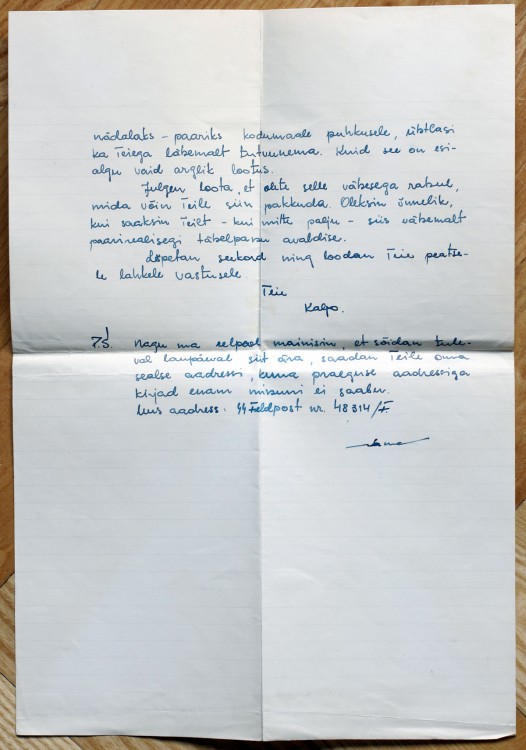 nädalaks – paariks kodumaale puhkusele, ühtlasi
ka Teiega lähemalt tutvunema. Kuid see on esi-
algu vaid arglik lootus.
Julgen loota, et olite selle vähesega rahul,
mida võin Teile siin pakkuda. Oleksin õnnelik,
kui saaksin Teilt – kui mitte palju – siis vähemalt
paarirealisegi tähelpanu avaldise.
Lõpetan seekord ning loodan Teie peatse-
le lahkele vastusele.
Teie
Kalpo.
P.S. Nagu ma eelpool mainisin, et sõidan tule-
val laupäeval siit ära, saadan Teile oma
sealse aadressi, kuna praeguse aadressiga
kirjad enam minuni ei saabu.
Uus aadress: SS Feldpost nr. 48314/F.